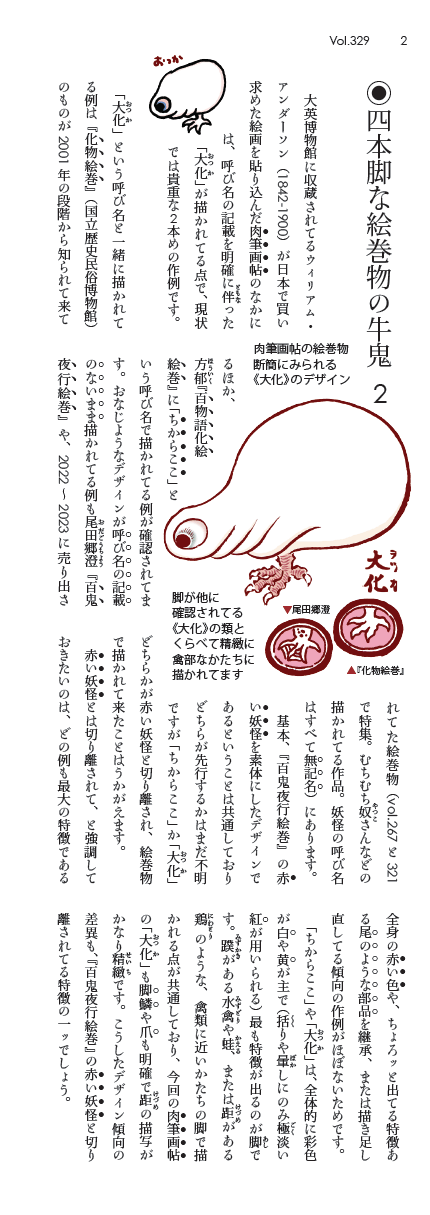 Vol.329　2
◉四本脚な絵巻物の牛鬼 2
大英博物館に収蔵されてるウィリアム・
アンダーソン（1842-1900）が日本で買い
求めた絵画を貼り込んだ肉筆画帖のなかに
は、呼び名の記載を明確に伴った
「大化」が描かれてる点で、現状
では貴重な2本めの作例です。
おっか
「大化」という呼び名と一緒に描かれて
る例は『化物絵巻』（国立歴史民俗博物館）
のものが2001年の段階から知られて来て
肉筆画帖の絵巻物
断簡にみられる
《大化》のデザイン
るほか、
方郁『百物語化絵
絵巻』に「ちからここ」と
いう呼び名で描かれてる例が確認されてま
す。おなじようなデザインが呼び名の記載
のないまま描かれてる例も尾田郷澄『百鬼
夜行絵巻』や、2022～2023に売り出さ
大化
ヲツカ
脚が他に
確認されてる
《大化》の類と
くらべて精緻に
禽部なかたちに
描かれてます
▼尾田郷澄
▲『化物絵巻』
れてた絵巻物（vol.267と321
で特集。むちむち奴さんなどの
描かれてる作品。妖怪の呼び名
はすべて無記名）にあります。
基本、『百鬼夜行絵巻』の赤
い妖怪を素体にしたデザインで
あるということは共通しており
どちらが先行するかはまだ不明
ですが「ちからここ」か「大化」
どちらかが赤い妖怪と切り離され、絵巻物
で描かれて来たことはうかがえます。
赤い妖怪とは切り離されて、と強調して
おきたいのは、どの例も最大の特徴である
全身の赤い色や、ちょろッと出てる特徴あ
る尾のような部品を継承、または描き足し
直してる傾向の作例がほぼないためです。
「ちからここ」や「大化」は、全体的に彩色
が白や黄が主で（括りや暈しにのみ極淡い
紅が用いられる）最も特徴が出るのが脚で
す。蹼がある水禽や蛙、または距がある
鶏のような、禽類に近いかたちの脚で描
かれる点が共通しており、今回の肉筆画帖
の「大化」も脚鱗や爪も明確で距の描写が
かなり精緻です。こうしたデザイン傾向の
差異も、『百鬼夜行絵巻』の赤い妖怪と切り
離されてる特徴の一ッでしょう。